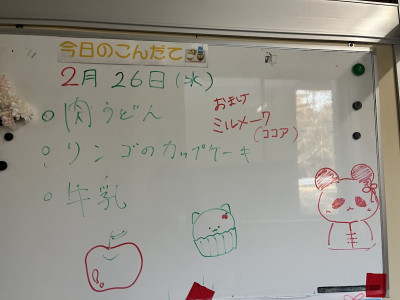 今日のこんだて
2月 26日(水)
○ 肉うどん
○ リンゴのカップケーキ
○ 牛乳
おまけ
ミルメーク
(ココア)